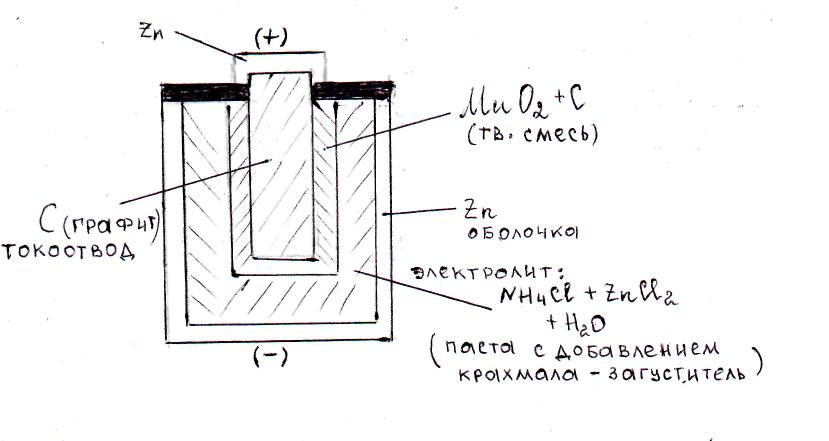 Zn
(+)
MnO2 + C
(тв. смесь)
C (графит)
токоотвод
Zn
оболочка
электролит:
NH4Cl + ZnCl2
+ H2O
(паста с добавлением
крахмала - загуститель)
(-)